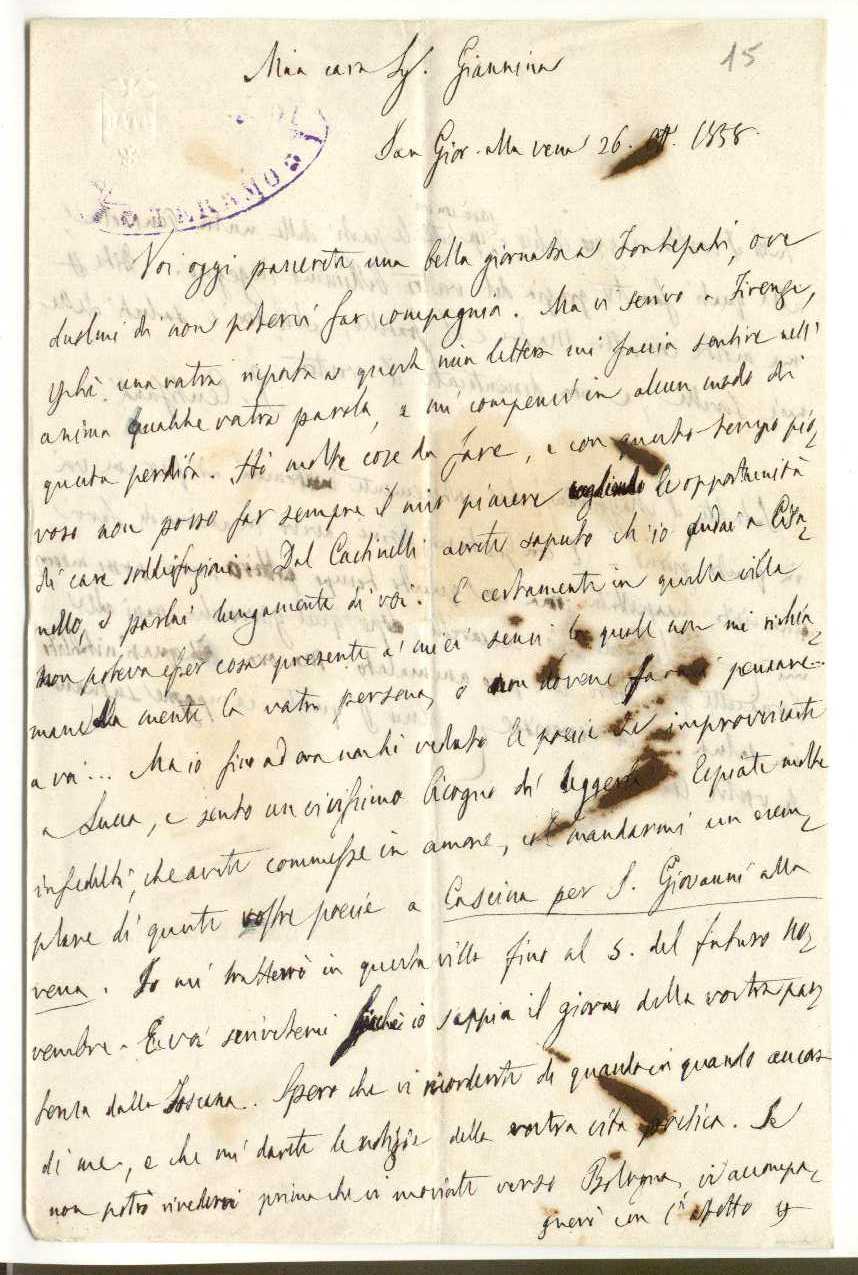 15
Mia cara Sg.ª Giannina
San Gior. alla vena 26. ott. 1858.
TERAMO
Voi oggi passerete una bella giornata a Fontepati, ove
duolmi di non potervi far compagnia. Ma vi scrivo a Firenze,
una vostra risposta a questa mia lettera mi faccia sentire nell'
anima qualche vostra parola, e mi compensi in alcun modo di
questa perdita. Ho molte cose da fare, e con questo tempo pio-
voso non posso far sempre il mio piacere cogliendo le opportunità
di care soddisfazioni. Dal Cactinelli avrete saputo ch'io andai a Cisa-
nello, e parlai lungamente di voi. E certamente in quella villa
non poteva esser cosa presente a' miei sensi la quale non mi richia-
masse alla mente la vostra persona, o non dovesse farmi pensare...
a voi... Ma io fino ad ora non ho veduto le poesie da improvvisate
a Lucca, e sento un vivissimo bisogno di leggerle. Espiate molte
infedeltà, che avete commesse in amore, col mandarmi un esem-
plare di queste vostre poesie a Cascina per S. Giovanni alla
vena. Io mi tratterrò in questa villa fino al 5. del futuro no-
vembre. E voi scrivetemi sicchè io sappia il giorno della vostra par-
tenza dalla Toscana. Spero che vi ricorderete di quando in quando ancora
di me, e che mi darete le notizie della vostra vita poetica. Se
non potrò rivedervi prima che vi moviate verso Bologna, vi accompa-
gnerò con l'affetto